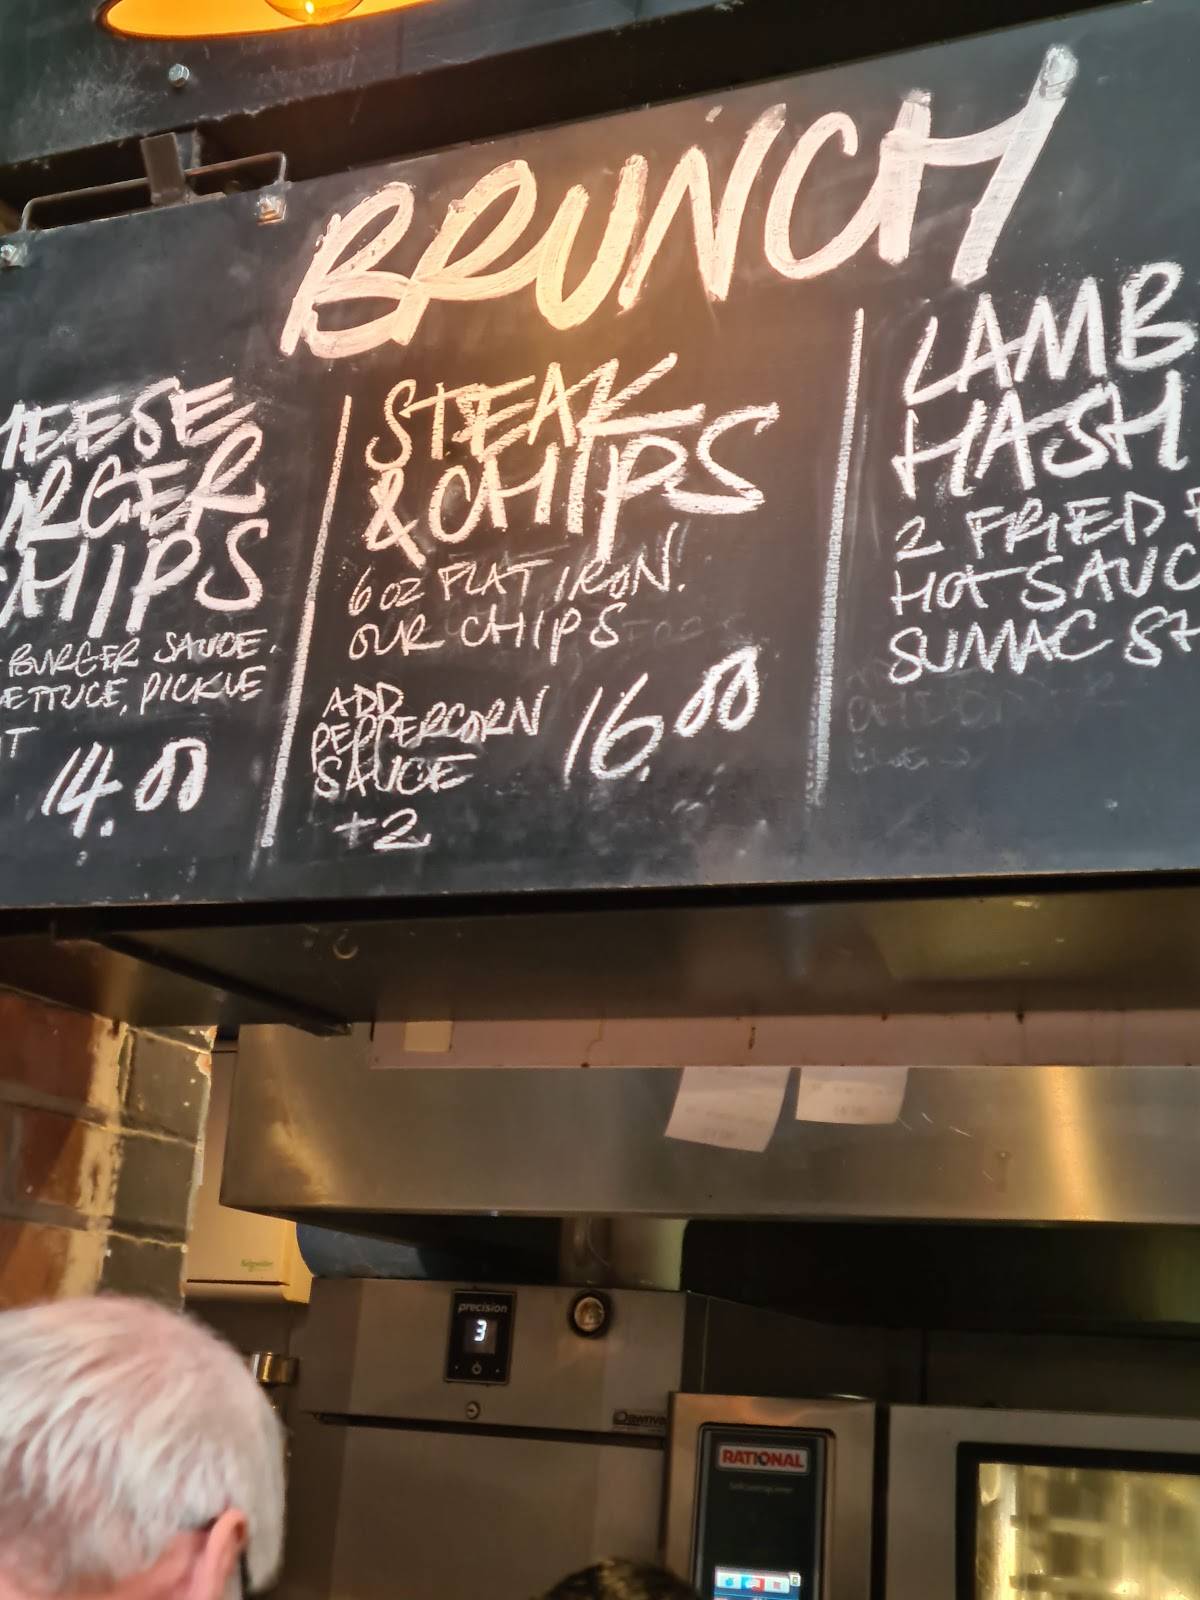 BRUNCH
HEESE
URGER
CHIPS
BURGER SAUCE.
LETTUCE, PICKLE
14.00
STEAK
& CHIPS
6 OZ FLAT IRON.
OUR CHIPS
ADD
PEPPERCORN
SAUCE
+2
16.00
LAMB
HASH
2 FRIED
HOT SAUC
SUMAC
Schneider
precision
3
RATIONAL
SelfCookingCenter